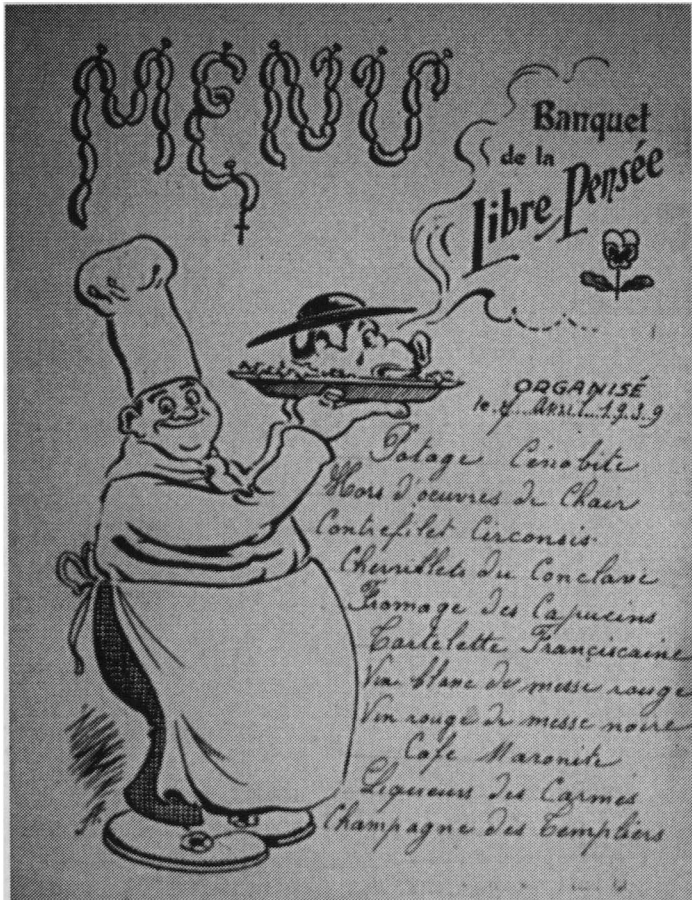 MENU
Banquet
de la
Libre Pensée
ORGANISÉ
le 7 Avril 1939
Potage Cénobite
Hors d'oeuvres de Chair
Contrefilet Circonsis
du Conclave
Fromage des Capucins
Tartelette Franciscaine
Vin blanc de messe rouge
Vin rouge de messe noire
Café Maronite
Liqueurs des Carmes
Champagne des Templiers